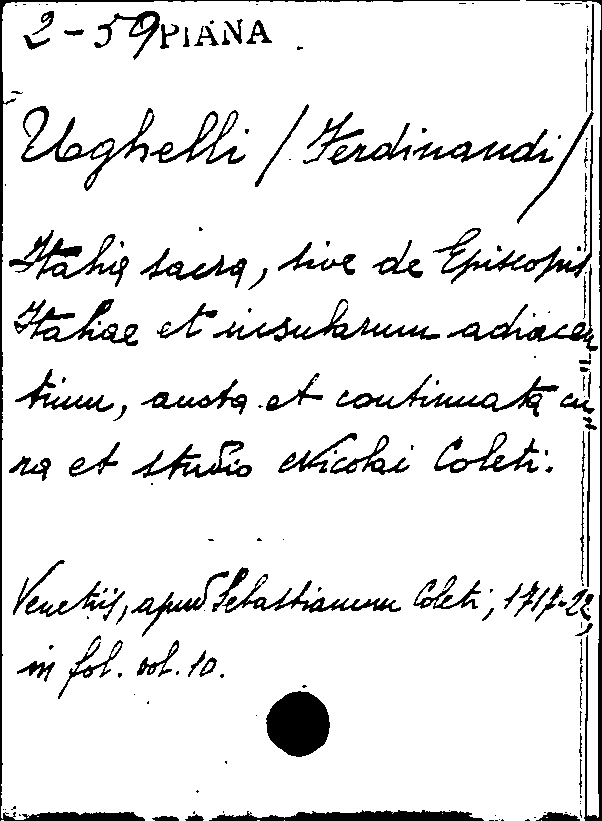 2-59 PIANA
Ughelli / Ferdinandi /
Italia sacra, sive de Episcopis
Italiae et insularum adiacen
tium, aucta et continuata cu
ra et studio Nicolai Coleti.
Venetiis, apud Sebastianum Coleti, 1717-22,
in fol. vol. 10.